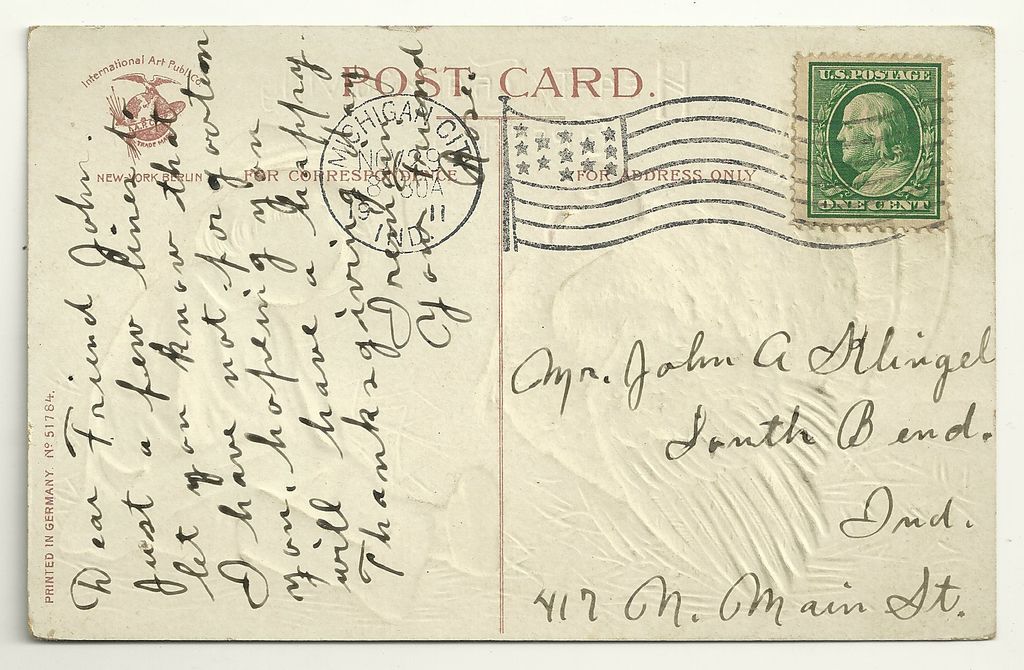 International Art Publ. Co.
TRADE MARK
NEW YORK BERLIN
POST CARD.
FOR CORRESPONDENCE
FOR ADDRESS ONLY
MICHIGAN CITY
NOV 29
8 30A
19 11
IND.
U.S.POSTAGE
ONE CENT
Dear Friend John.
Just a few lines to
let you know that
I have not forgotten
you. hoping you
will have a happy
Thanksgiving
Your friend
Mr. John A Klingel
South Bend.
Ind.
417 N. Main St.
PRINTED IN GERMANY. Nº 51784.